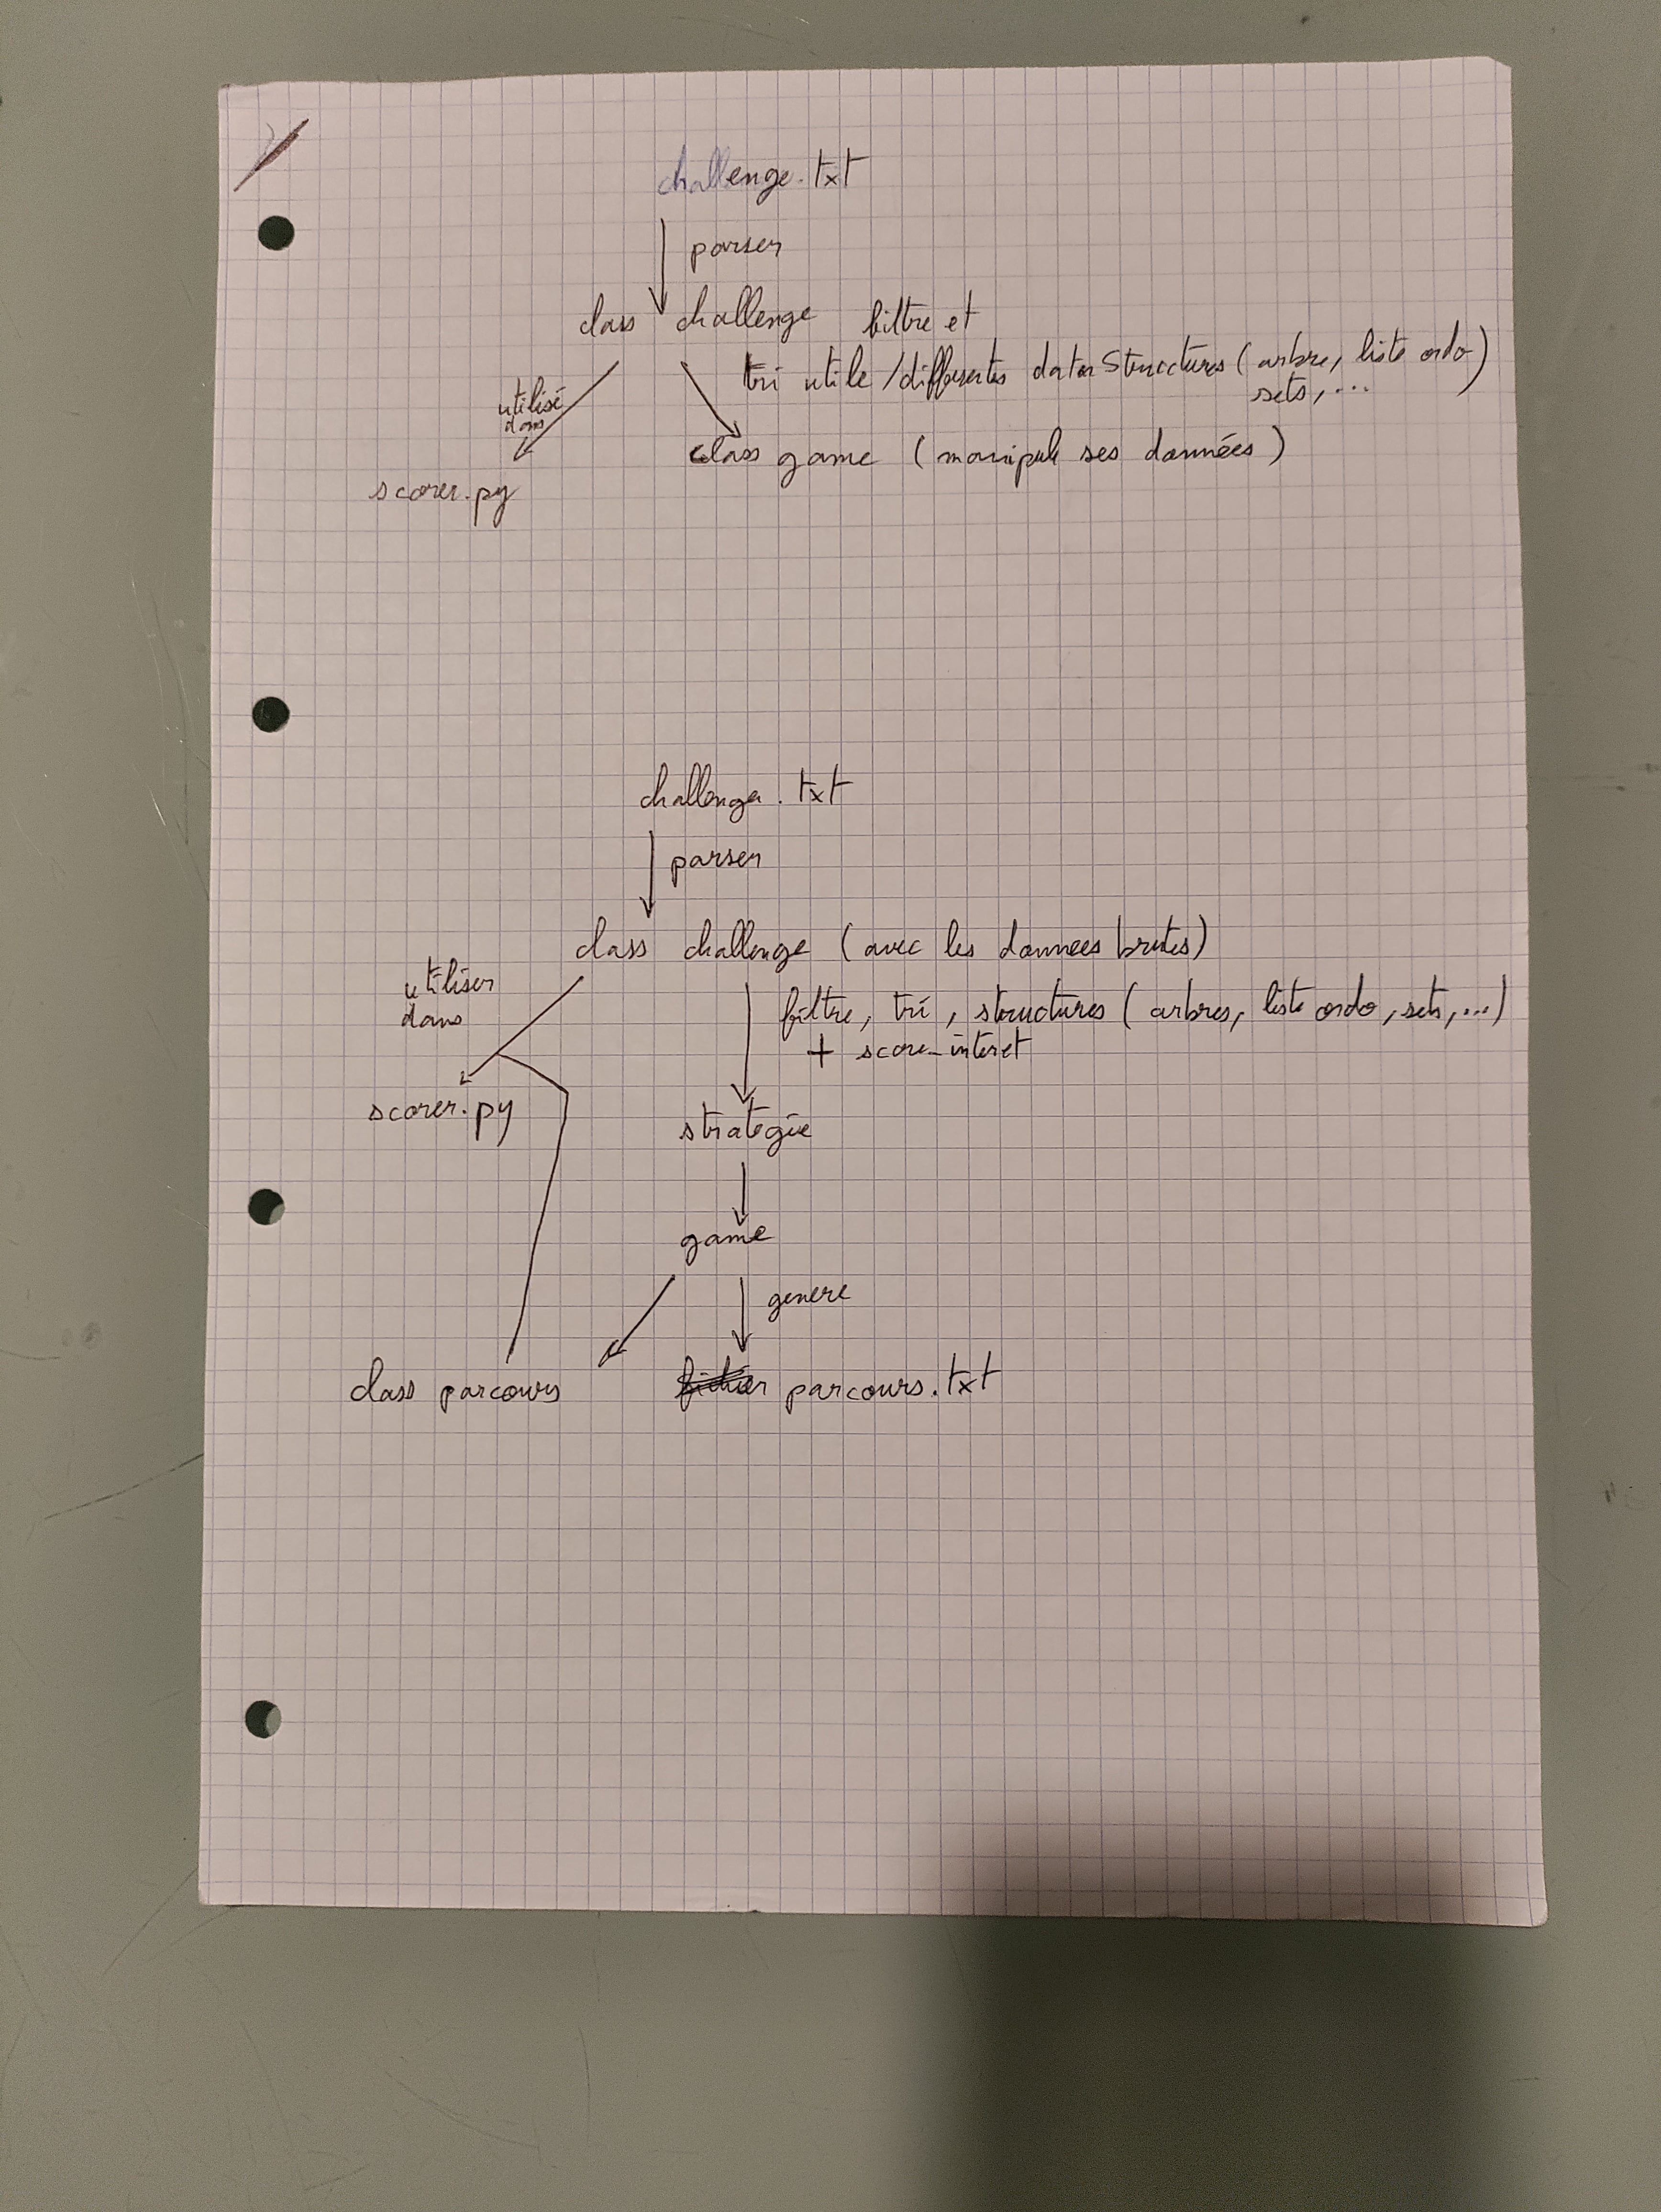 challenge.txt
parser
class challenge filtre et
tri utile / differentes data structures (arbre, liste ordo
sets, ...)
utilisé
dans
class game (manipule ses données)
scorer.py
challenge.txt
parser
class challenge (avec les donnees brutes)
utiliser
dans
filtre, tri, structures (arbres, liste ordo, sets, ...)
+ score_interet
scorer.py
strategie
game
genere
class parcours
fichier parcours.txt